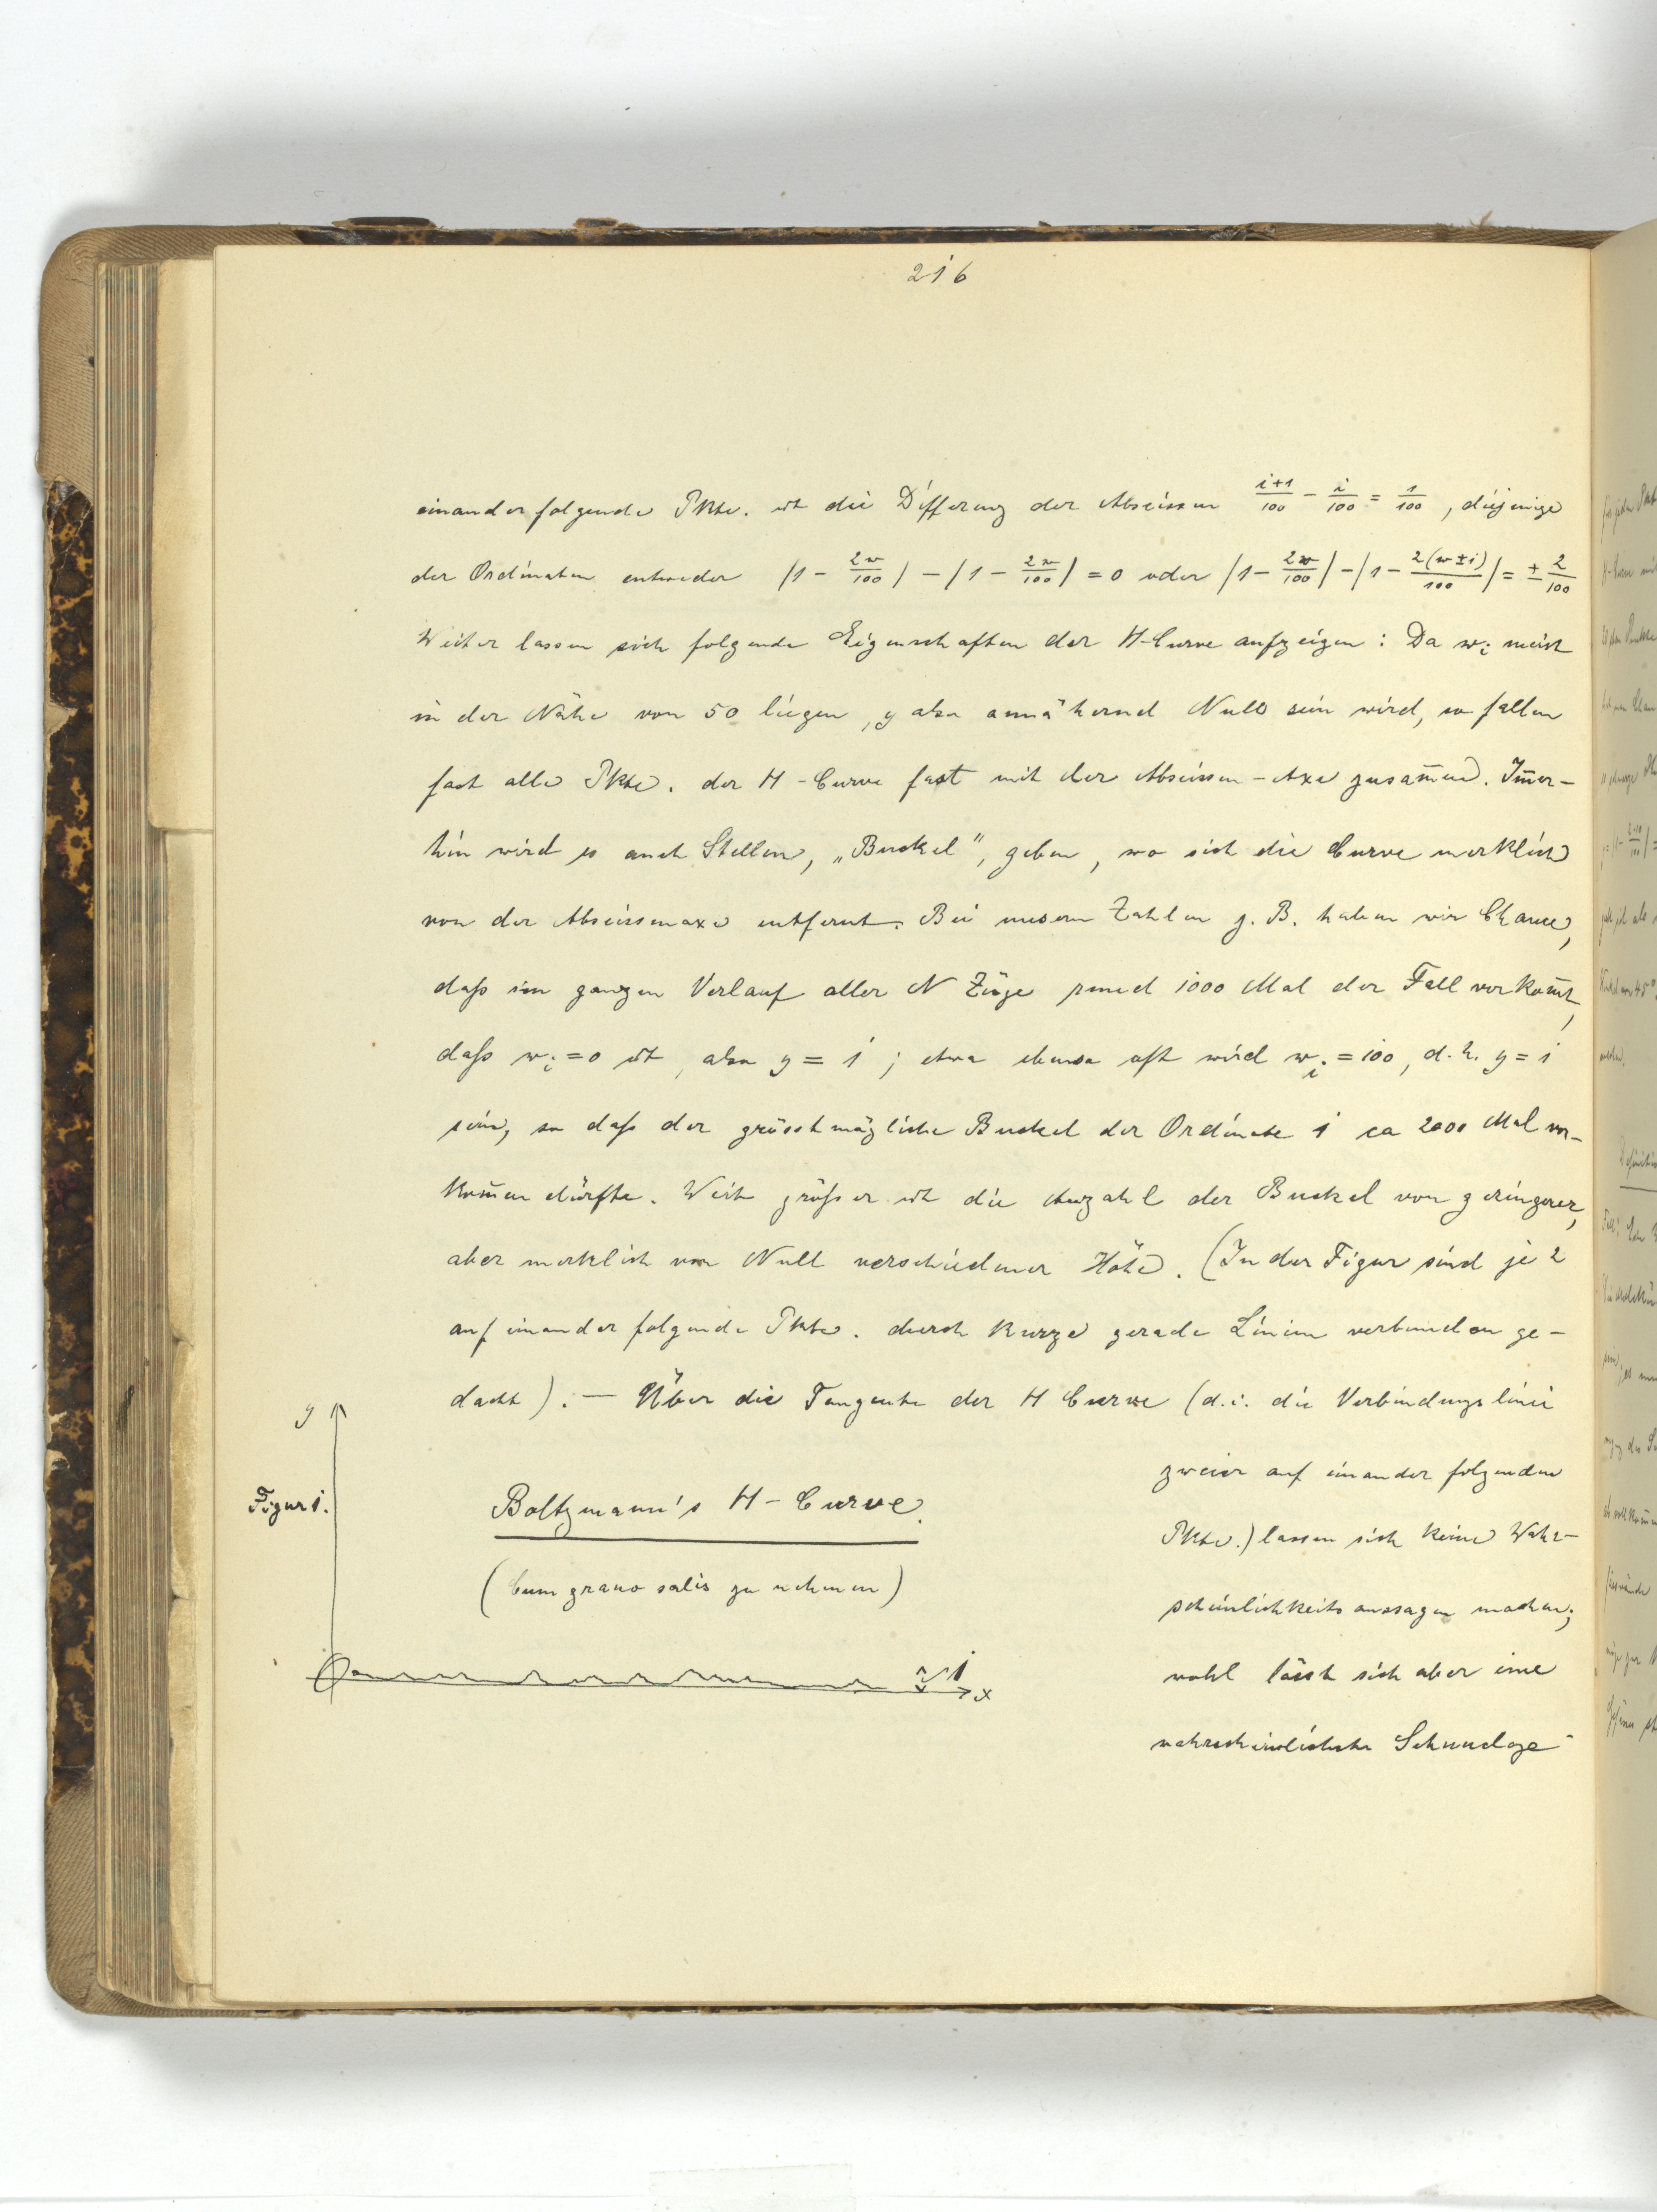 216
einander folgende Pkte. ist die Differenz der Abscissen (i+1)/100 − i/100 = 1/100, diejenige
der Ordinaten entweder |1 − 2w/100| − |1 − 2w/100| = 0 oder |1 − 2w/100| − |1 − 2(w±1)/100| = ± 2/100
Weiter lassen sich folgende Eigenschaften der H-Curve aufzeigen: Da wᵢ meist
in der Nähe von 50 liegen, y also annähernd Null sein wird, so fallen
fast alle Pkte. der H-Curve fast mit der Abscissen-Axe zusam̄en. Im̄er-
hin wird es auch Stellen, „Buckel", geben, wo sich die Curve merklich
von der Abscissenaxe entfernt. Bei unsern Zahlen z. B. haben wir Chance,
daß im ganzen Verlauf aller N Züge rund 1000 Mal der Fall vorkom̄t,
daß wᵢ = 0 ist, also y = 1; etwa ebenso oft wird wᵢ = 100, d. h. y = 1
sein, so daß der grösstmögliche Buckel der Ordinate 1 ca 2000 Mal vor-
kom̄en dürfte. Weit größer ist die Anzahl der Buckel von geringerer,
aber merklich von Null verschiedener Höhe. (In der Figur sind je 2
auf einander folgende Pkte. durch kurze gerade Linien verbunden ge-
dacht). — Über die Tangente der H Curve (d. i. die Verbindungslinie
zweier auf einander folgenden
Pkte.) lassen sich keine Wahr-
scheinlichkeitsaussagen machen;
wohl lässt sich aber eine
wahrscheinlichste Sehnenlage
y
Figur 1.
Boltzmann's H-Curve.
(Cum grano salis zu nehmen)
1
x